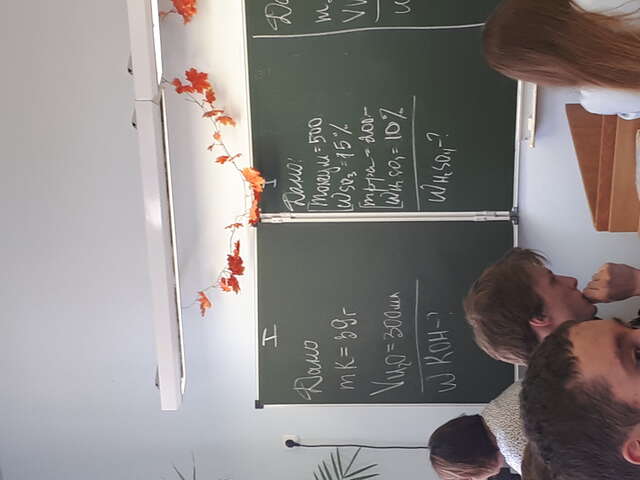 I
Дано
mK = 39г
VH₂O = 300мл
w KOH - ?
I
Дано:
mолеум = 500
wSO₃ = 15%
mр-ра = 200г
wH₂SO₄ = 10%
wH₂SO₄ - ?